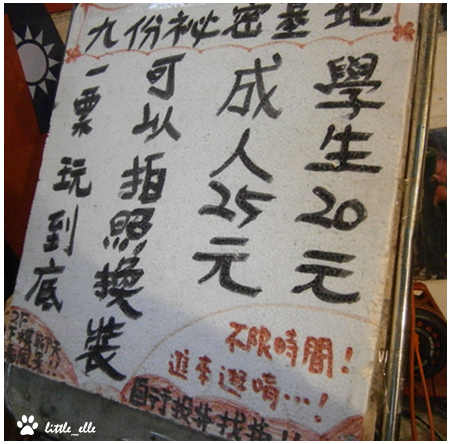 九份祕密基地
學生20元
成人25元
可以拍照換裝
一票玩到底
不限時間!
進來逛唷…!
自行投井找井!!
little_elle